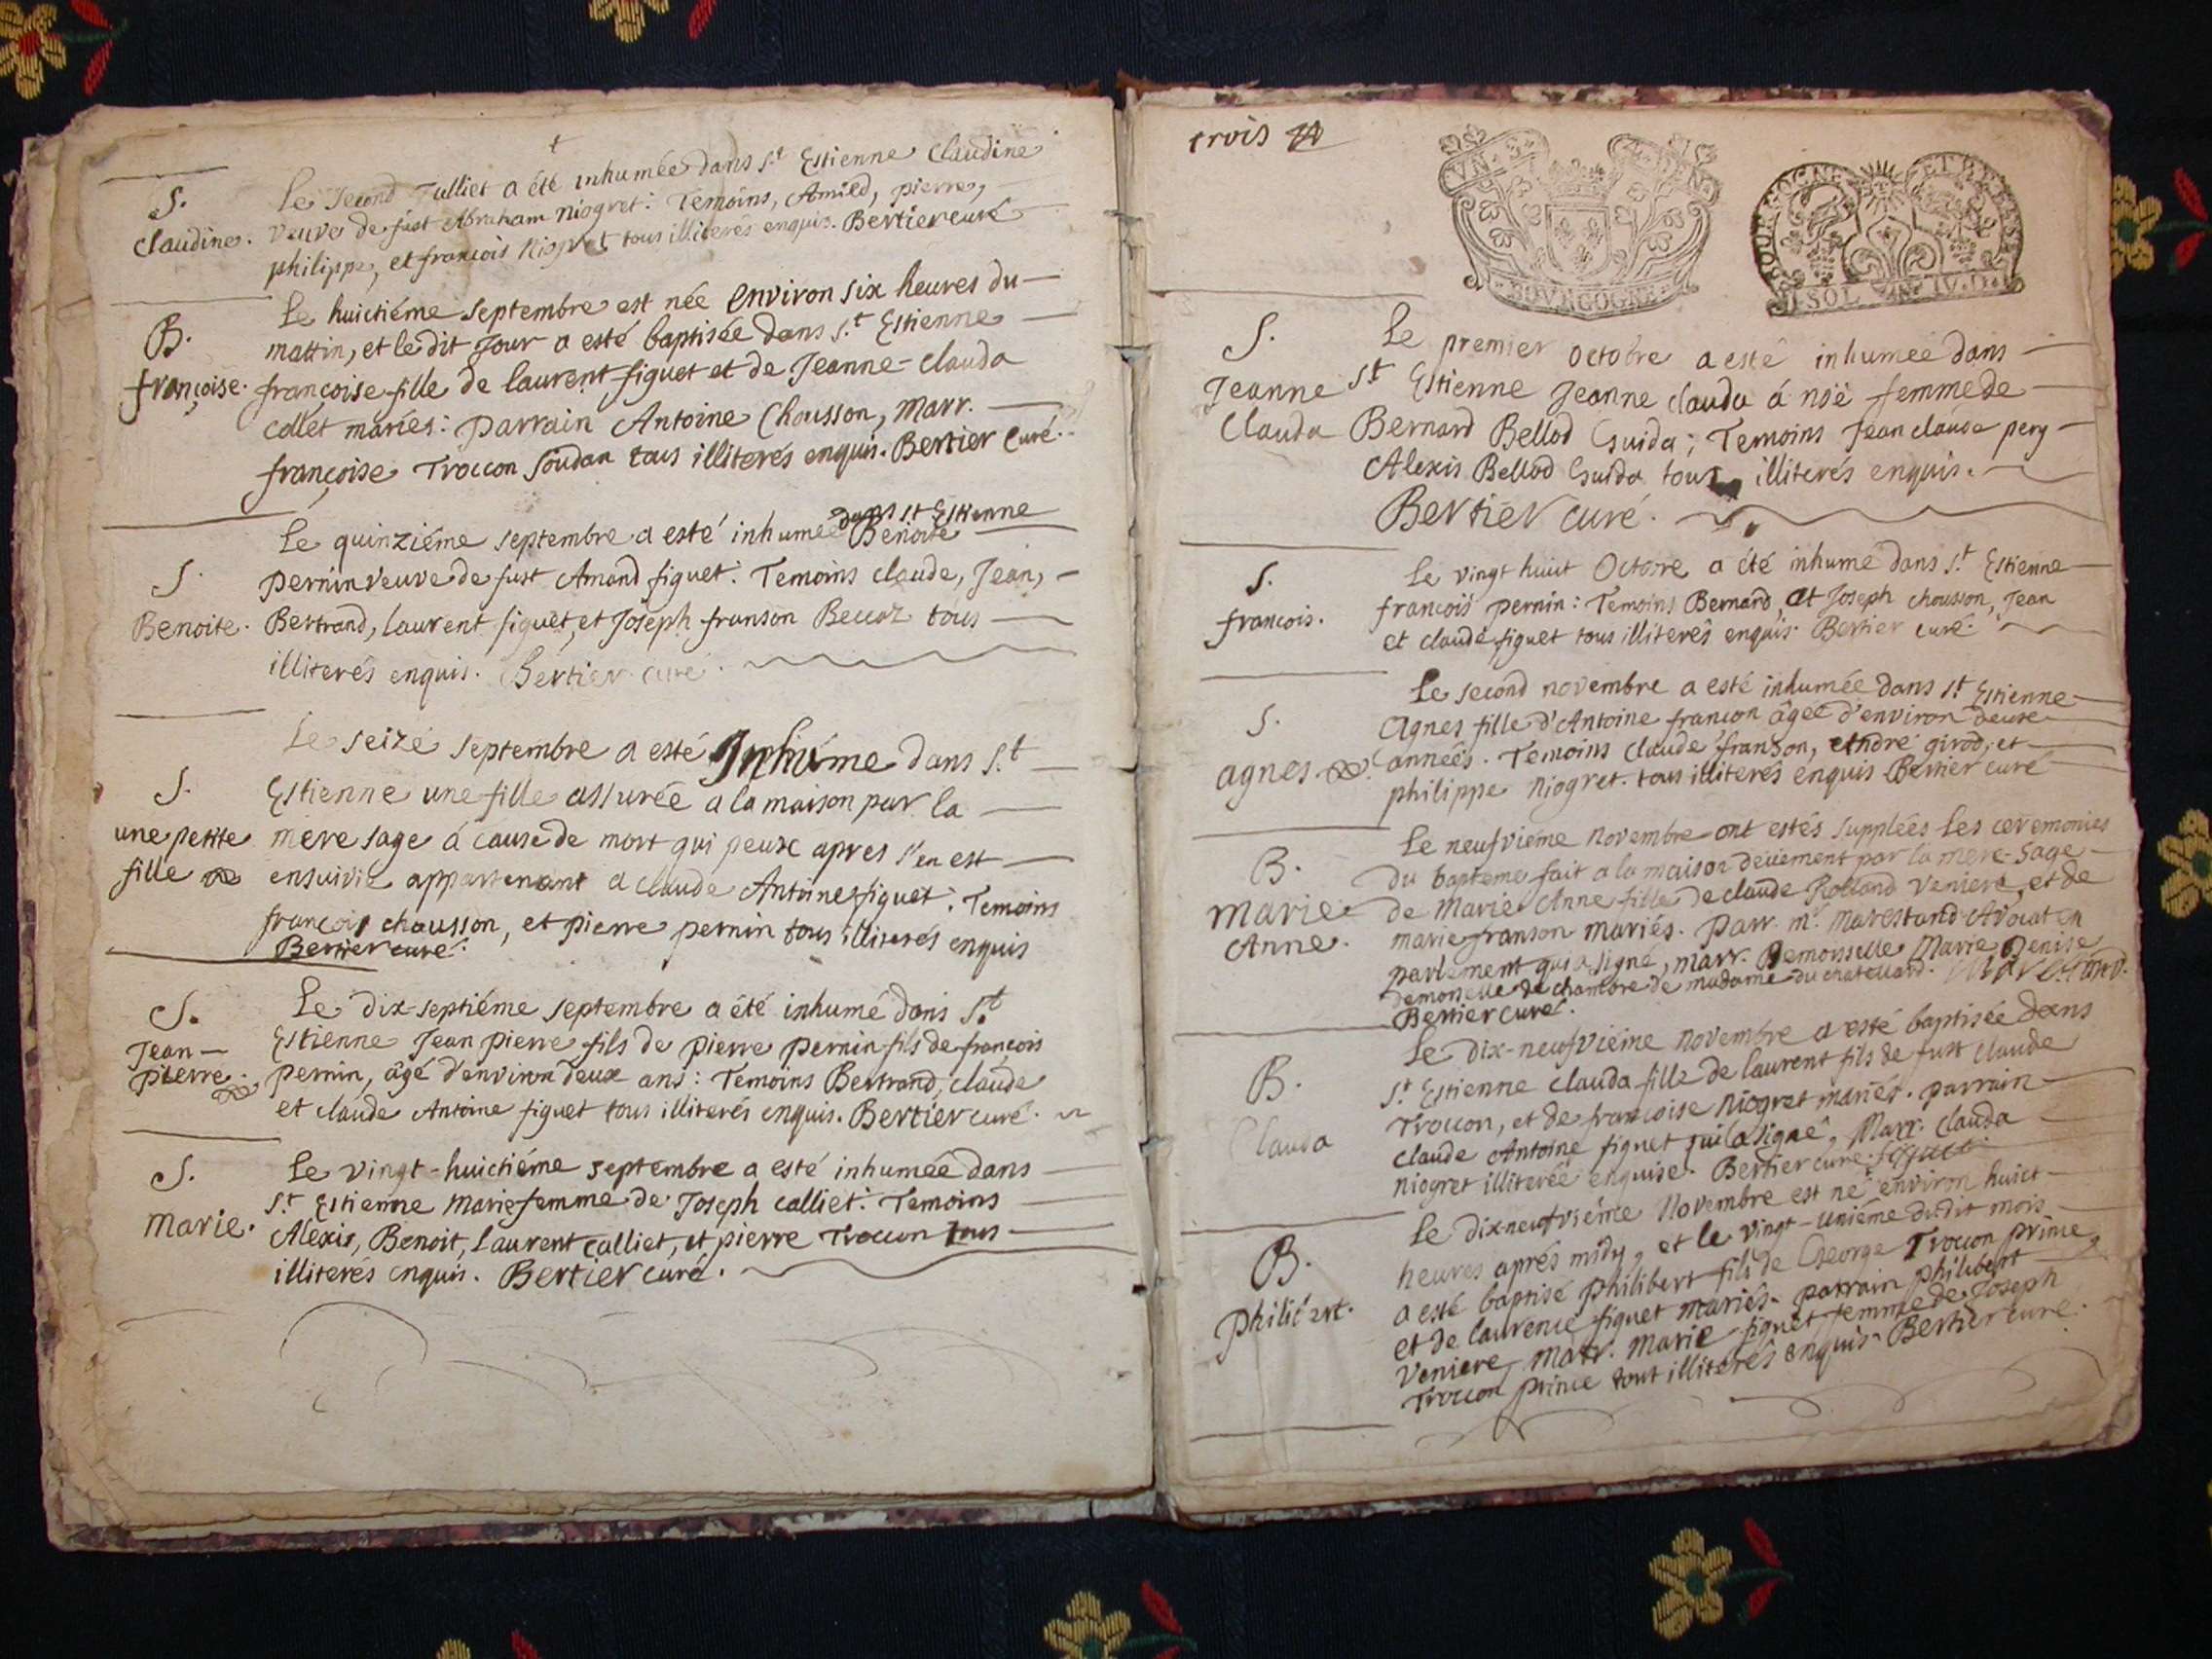 S.
Claudine.
Le second Julliet a été inhumée dans S.t Estienne Claudine
veuve de fust Abraham Niogret: Temoins, Amied, pierre,
philippe, et francois Niogret tous illiterés enquis. Bertier curé
B.
françoise.
Le huictiéme septembre est née environ six heures du
mattin, et le dit Jour a esté baptisée dans S.t Estienne
françoise fille de laurent figuet et de Jeanne-clauda
collet mariés: parrain Antoine Chousson, Marr.
françoise Troccon Soudan tous illiterés enquis. Bertier Curé.
S.
Benoite.
Le quinziéme septembre a esté inhumée dans st Estienne Benoite
pernin veuve de fust Amand figuet: Temoins claude, Jean,
Bertrand, laurent figuet, et Joseph franson Beccoz tous
illiterés enquis. Bertier curé.
S.
une petite
fille
Le seize septembre a esté Inhumé dans S.t
Estienne une fille assurée a la maison par la
mere sage á cause de mort qui peux apres s'en est
ensuivie appartenant a claude Antoine figuet: Temoins
francois chousson, et pierre pernin tous illiterés enquis
Bertier curé.
S.
Jean
pierre.
Le dix-septiéme septembre a été inhumé dans S.t
Estienne Jean pierre fils de pierre pernin fils de françois
pernin, âgé d'environ deux ans: Temoins Bertrand, claude
et claude Antoine figuet tous illiterés enquis. Bertier curé.
S.
Marie.
Le vingt-huictiéme septembre a esté inhumée dans
S.t Estienne Marie femme de Joseph calliet: Temoins
Alexis, Benoit, Laurent calliet, et pierre Troccon tous
illiterés enquis. Bertier curé.
trois
BOURGOGNE ET BRESSE
BOURGOGNE
SOL
S.
Jeanne
Clauda
Le premier octobre a esté inhumée dans
S.t Estienne Jeanne clauda á noë femme de
Bernard Bellod Guida; Temoins Jean claude pery
Alexis Bellod Guida tous illiterés enquis.
Bertier curé.
S.
francois.
Le vingt huict Octobre a été inhumé dans S.t Estienne
francois pernin: Temoins Bernard, et Joseph chousson, Jean
et claude figuet tous illiterés enquis. Bertier curé.
S.
agnes.
Le second novembre a esté inhumée dans S.t Estienne
Agnes fille d'Antoine francon âgée d'environ deux
années. Temoins claude franson, André girod, et
philippe Niogret. tous illiterés enquis Bertier curé
B.
Marie
Anne.
Le neufviéme novembre ont estés supplées les ceremonies
du bapteme fait a la maison deüement par la mere-sage
de Marie Anne fille de claude Rolland Veniere, et de
marie franson mariés. parr. mr. Marestand Avocat en
parlement qui a signé, marr. Demoiselle Marie Denise
demoiselle de chambre de madame du chatellard.
Bertier curé.
B.
Clauda
Le dix-neufviéme novembre a esté baptisée dans
S.t Estienne clauda fille de laurent fils de fust claude
Troccon, et de francoise Niogret mariés. parrain
claude Antoine figuet qui a signé, Marr. clauda
niogret illiterée enquise. Bertier curé. figuet
B.
philibert.
Le dixneufviéme Novembre est né environ huict
heures aprés midy, et le vingt-uniéme du dit mois
a esté baptisé philibert fils de George Troccon prince,
et de laurence figuet mariés. parrain philibert
Veniere, Marr. Marie figuet femme de Joseph
Troccon prince tout illiterés enquis. Bertier curé.